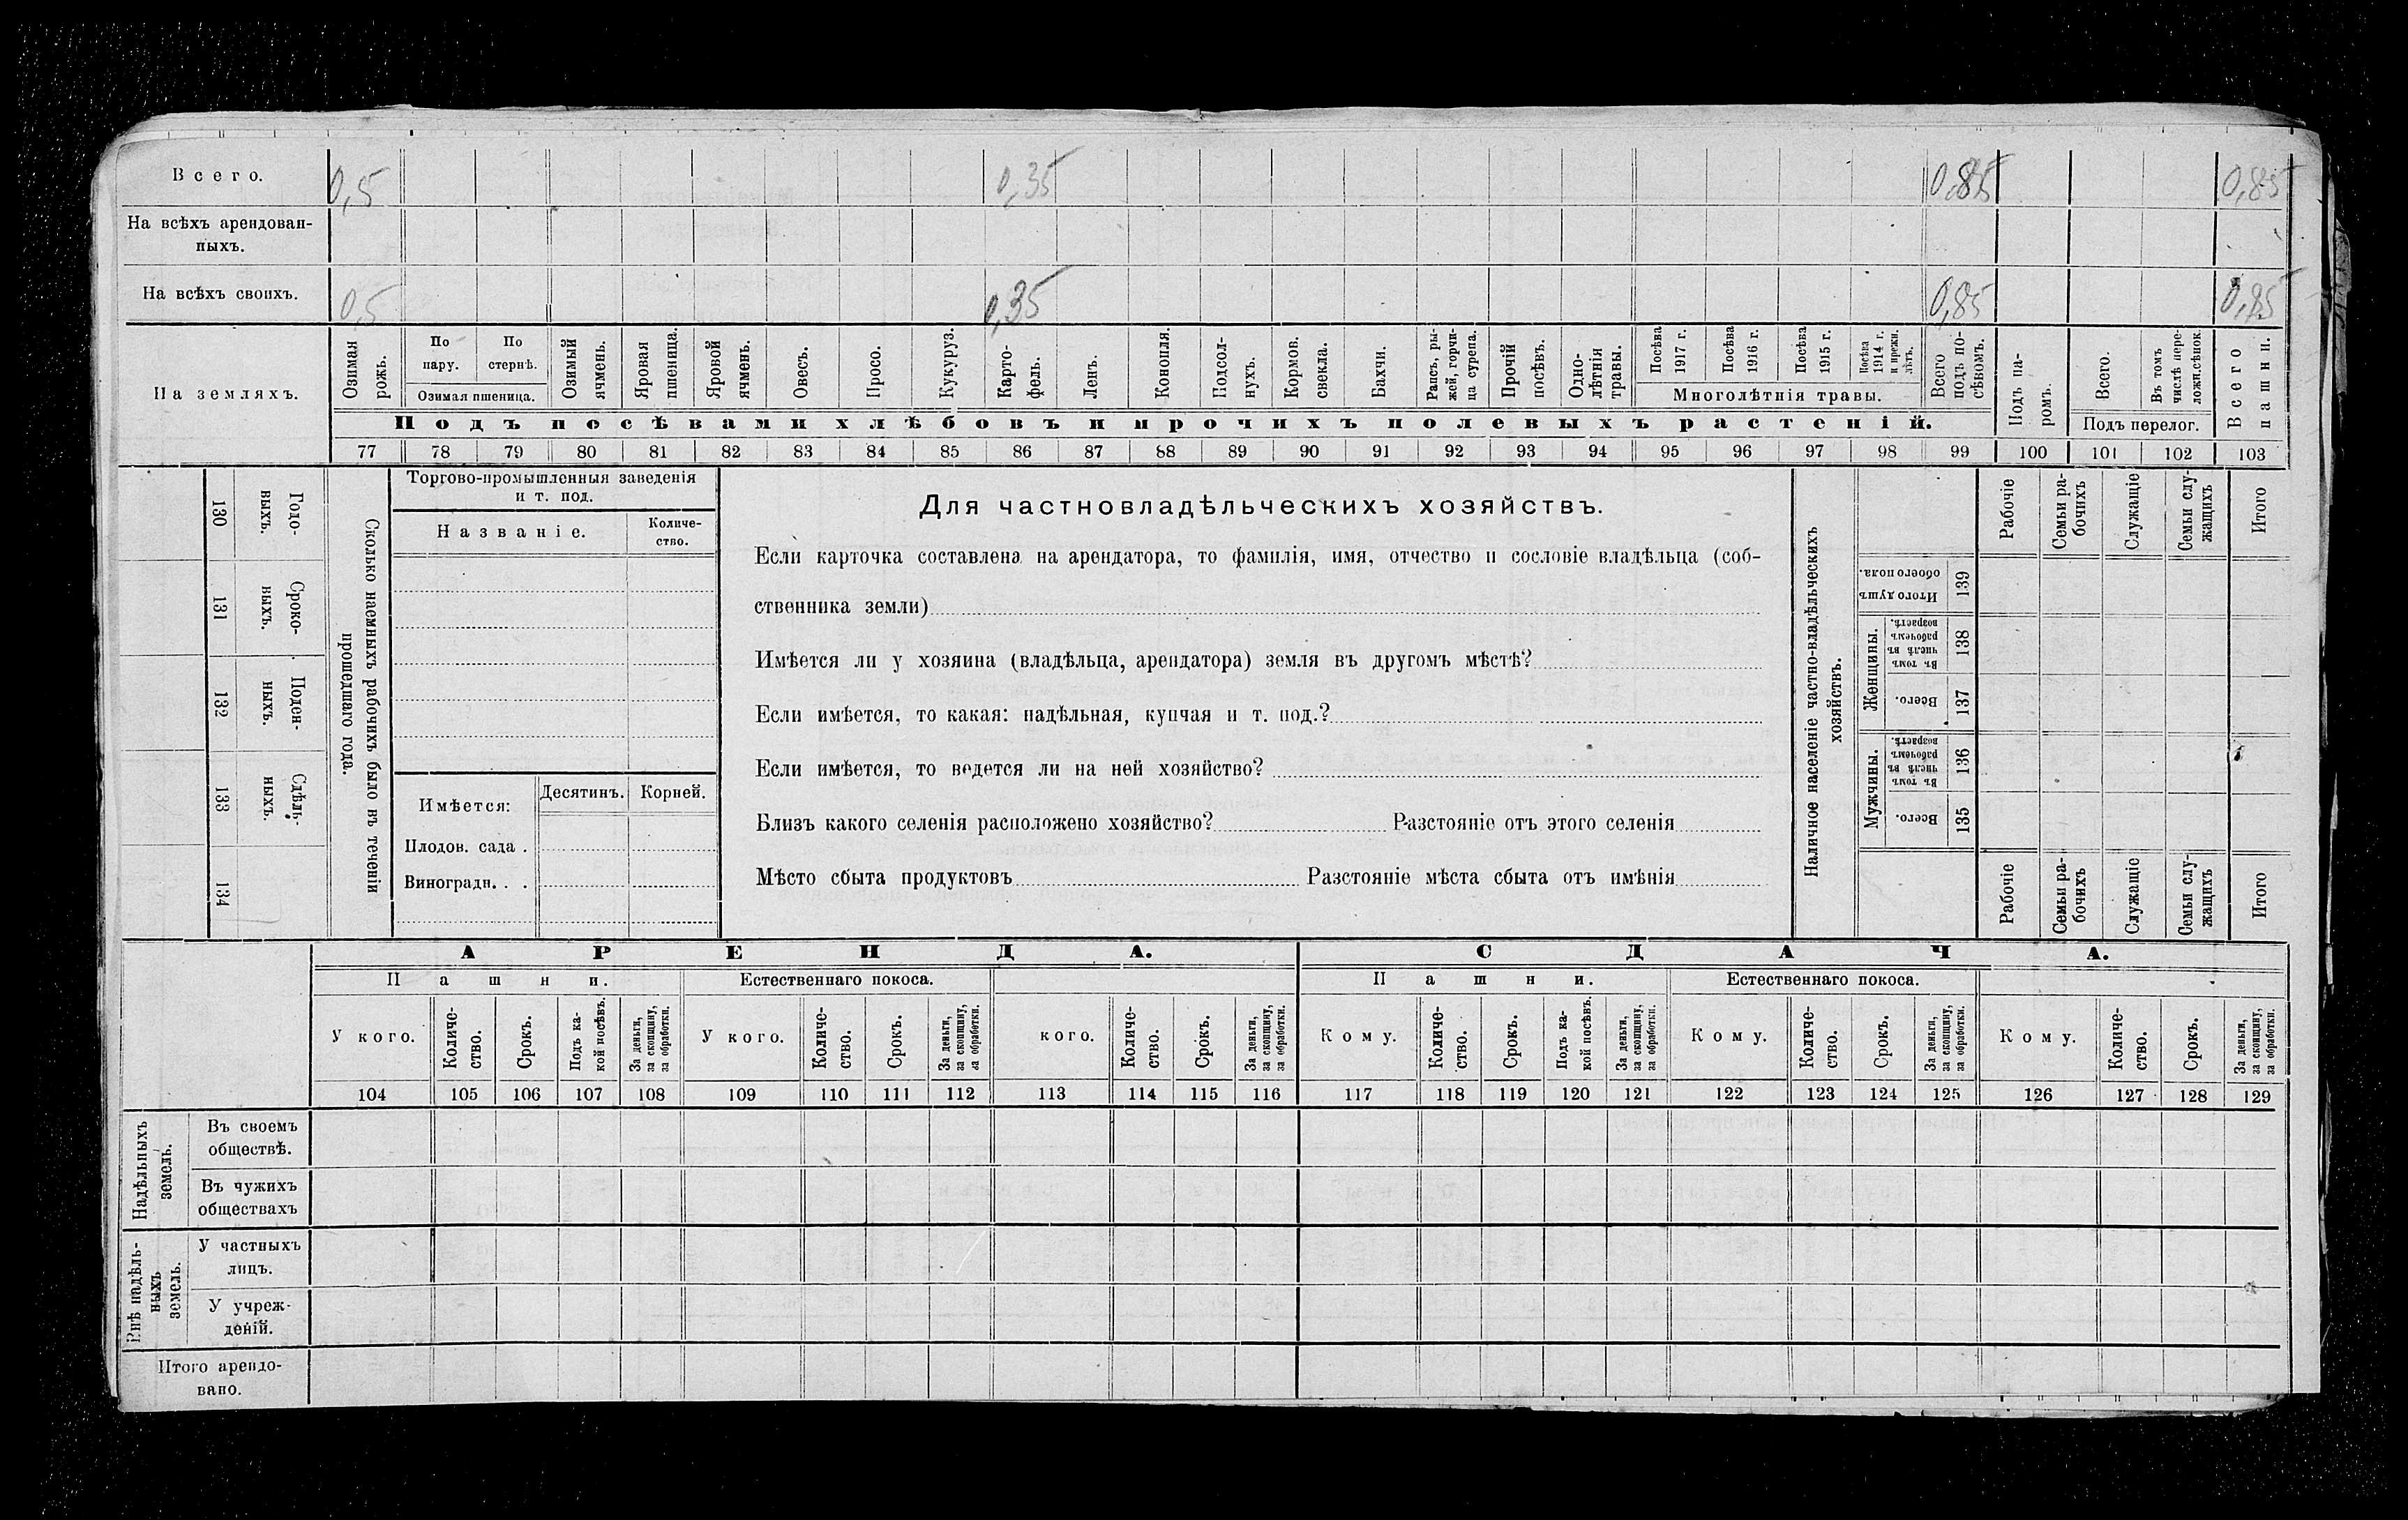 Всего. 0,5 0,35 0,85 0,85
На всѣхъ арендован-
ныхъ.
На всѣхъ своихъ. 0,5 0,35 0,85 0,85
На земляхъ.
Озимая рожь.
По пару.
По стернѣ.
Озимая пшеница.
Озимый ячмень.
Яровая пшеница.
Яровой ячмень.
Овесъ.
Просо.
Кукуруз.
Карто-
фель.
Ленъ.
Конопля.
Подсол-
нухъ.
Кормов. свекла.
Бахчи.
Рапсъ, ры-
жей, горчи-
ца сурепа.
Прочій посѣвъ.
Одно-
лѣтнія травы.
Посѣва 1917 г.
Посѣва 1916 г.
Посѣва 1915 г.
Посѣва 1914 г. и прежн. лѣтъ.
Многолѣтнія травы.
Всего подъ по-
сѣвомъ.
Подъ па-
ромъ.
Всего.
Въ томъ числѣ пере-
ложн.сѣнок.
Подъ перелог.
Всего пашни.
Подъ посѣвами хлѣбовъ и прочихъ полевыхъ растеній.
77 78 79 80 81 82 83 84 85 86 87 88 89 90 91 92 93 94 95 96 97 98 99 100 101 102 103
130 Годо-
выхъ.
131 Сроко-
ныхъ.
132 Поден-
ныхъ.
133 Сдѣль-
ныхъ.
134
Сколько наемныхъ рабочихъ было въ теченіи
прошедшаго года.
Торгово-промышленныя заведенія
и т. под.
Названіе.
Количе-
ство.
Имѣется:
Десятинъ. Корней.
Плодов. сада .
Виноградн. . .
Для частновладѣльческихъ хозяйствъ.
Если карточка составлена на арендатора, то фамилія, имя, отчество и сословіе владѣльца (соб-
ственника земли)
Имѣется ли у хозяина (владѣльца, арендатора) земля въ другомъ мѣстѣ?
Если имѣется, то какая: надѣльная, купчая и т. под.?
Если имѣется, то ведется ли на ней хозяйство?
Близъ какого селенія расположено хозяйство? Разстояніе отъ этого селенія
Мѣсто сбыта продуктовъ Разстояніе мѣста сбыта отъ имѣнія
Наличное населеніе частно-владѣльческихъ
хозяйствъ.
Рабочіе
Семьи ра-
бочихъ
Служащіе
Семьи слу-
жащихъ
Итого
Итого душъ обоего пола. 139
Женщины.
Въ томъ числѣ въ рабочемъ возрастѣ. 138
Всего. 137
Мужчины.
Въ томъ числѣ въ рабочемъ возрастѣ. 136
Всего. 135
Рабочіе
Семьи ра-
бочихъ
Служащіе
Семьи слу-
жащихъ
Итого
АРЕНДА. СДАЧА.
Пашни. Естественнаго покоса. Пашни. Естественнаго покоса.
У кого.
Количе-
ство.
Срокъ.
Подъ ка-
кой посѣвъ.
За деньги, за скопщину, за обработки.
У кого.
Количе-
ство.
Срокъ.
За деньги, за скопщину, за обработки.
кого.
Количе-
ство.
Срокъ.
За деньги, за скопщину, за обработки.
Кому.
Количе-
ство.
Срокъ.
Подъ ка-
кой посѣвъ.
За деньги, за скопщину, за обработки.
Кому.
Количе-
ство.
Срокъ.
За деньги, за скопщину, за обработки.
Кому.
Количе-
ство.
Срокъ.
За деньги, за скопщину, за обработки.
104 105 106 107 108 109 110 111 112 113 114 115 116 117 118 119 120 121 122 123 124 125 126 127 128 129
Надѣльныхъ
земель.
Въ своемъ
обществѣ.
Въ чужихъ
обществахъ
Внѣ надѣль-
ныхъ
земель.
У частныхъ
лицъ.
У учреж-
деній.
Итого арендо-
вано.